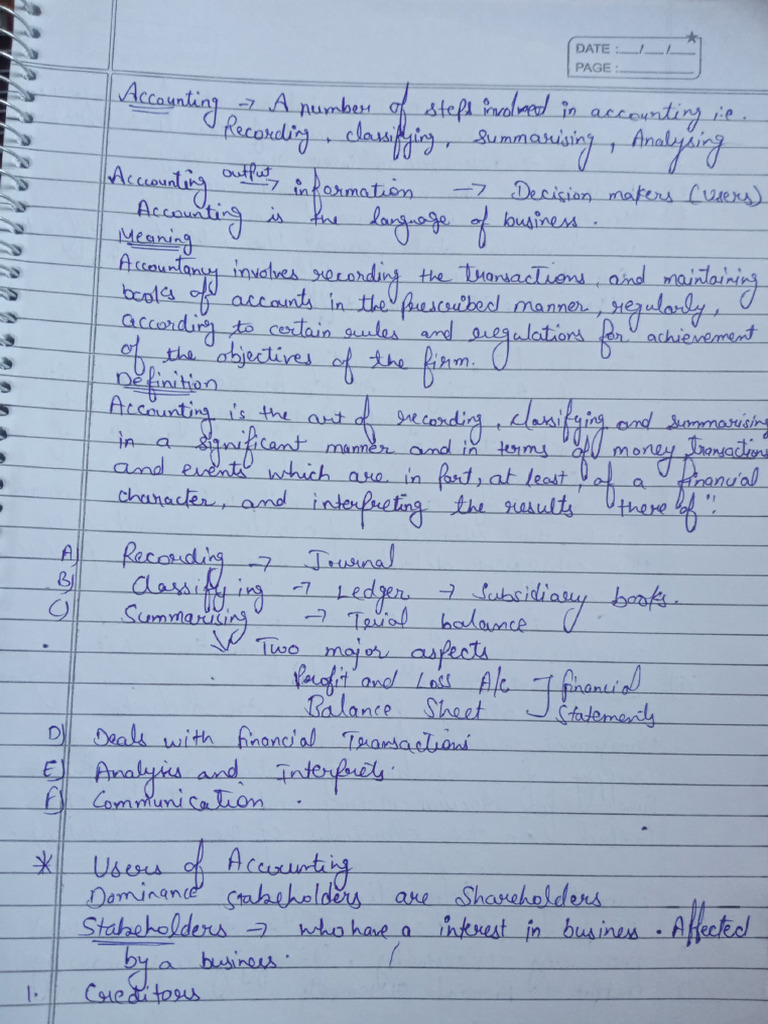 DATE : __/__/__
PAGE : ______
Accounting → A number of steps involved in accounting i.e.
Recording, classifying, summarising, Analysing
Accounting output → information → Decision makers (Users)
Accounting is the language of business.
Meaning
Accountancy involves recording the transactions, and maintaining
books of accounts in the prescribed manner, regularly,
according to certain rules and regulations for achievement
of the objectives of the firm.
Definition
Accounting is the art of recording, classifying and summarising
in a significant manner and in terms of money, transactions
and events which are in part, at least, of a financial
character, and interpreting the results there of".
A) Recording → Journal
B) Classifying → Ledger → Subsidiary books.
C) Summarising → Trial balance
Two major aspects
Profit and Loss A/c ] financial
Balance Sheet ] Statements
D) Deals with financial Transactions
E) Analysis and Interprets.
F) Communication.
* Users of Accounting
Dominance stakeholders are Shareholders
Stakeholders → who have a interest in business. Affected
by a business.
1. Creditors